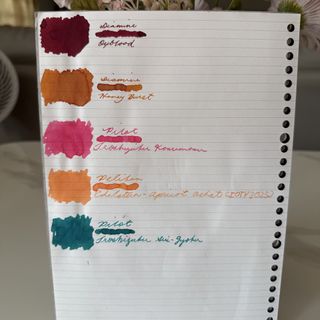 Diamine
Oxblood
Diamine
Honey Burst
Pilot
Iroshizuku Kosumosu
Pelikan
Edelstein - Apricot Achat (IOTY 2023)
Pilot
Iroshizuku Sui-Gyoku